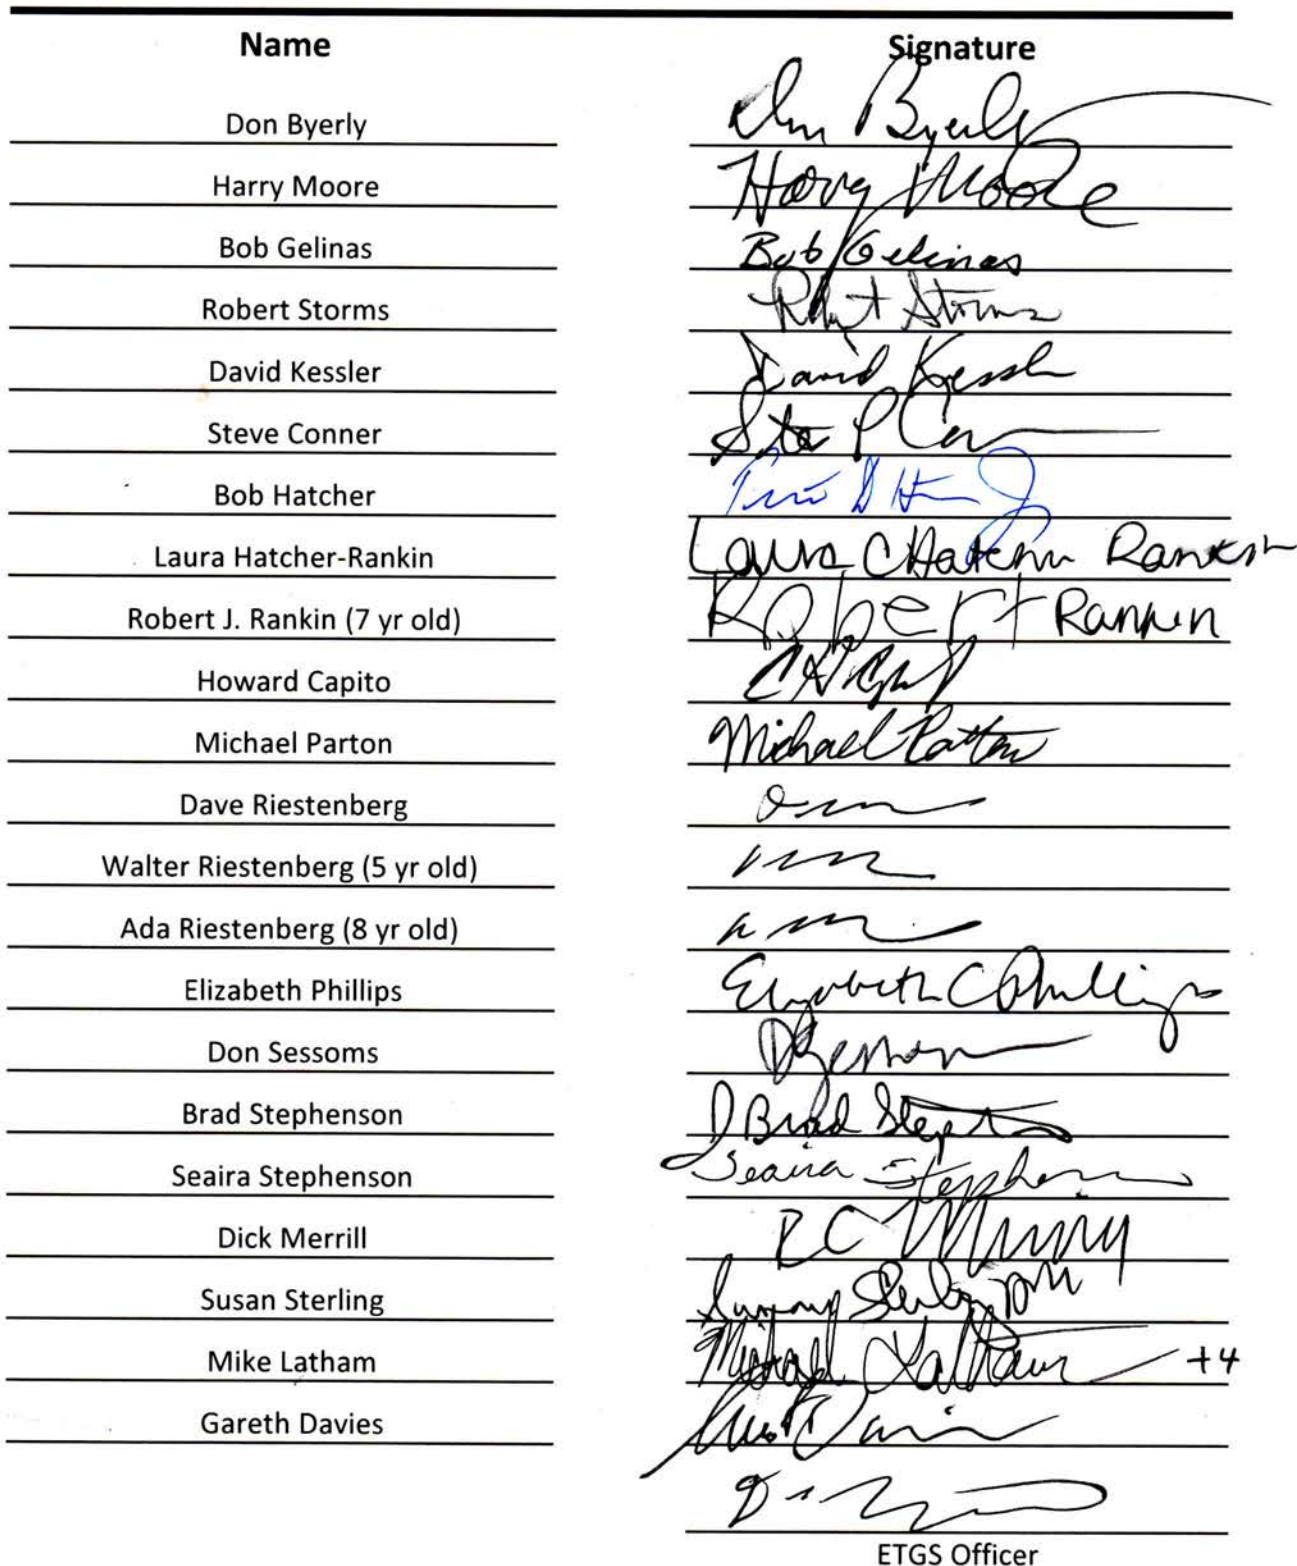 Name Signature
Don Byerly Don Byerly
Harry Moore Harry Moore
Bob Gelinas Bob Gelinas
Robert Storms Robt Storms
David Kessler David Kessler
Steve Conner
Bob Hatcher
Laura Hatcher-Rankin Laura C Hatcher Rankin
Robert J. Rankin (7 yr old) Robert Rankin
Howard Capito
Michael Parton Michael Parton
Dave Riestenberg
Walter Riestenberg (5 yr old)
Ada Riestenberg (8 yr old)
Elizabeth Phillips Elizabeth C Phillips
Don Sessoms
Brad Stephenson Brad
Seaira Stephenson Seaira Stephenson
Dick Merrill
Susan Sterling
Mike Latham Michael Latham +4
Gareth Davies
ETGS Officer